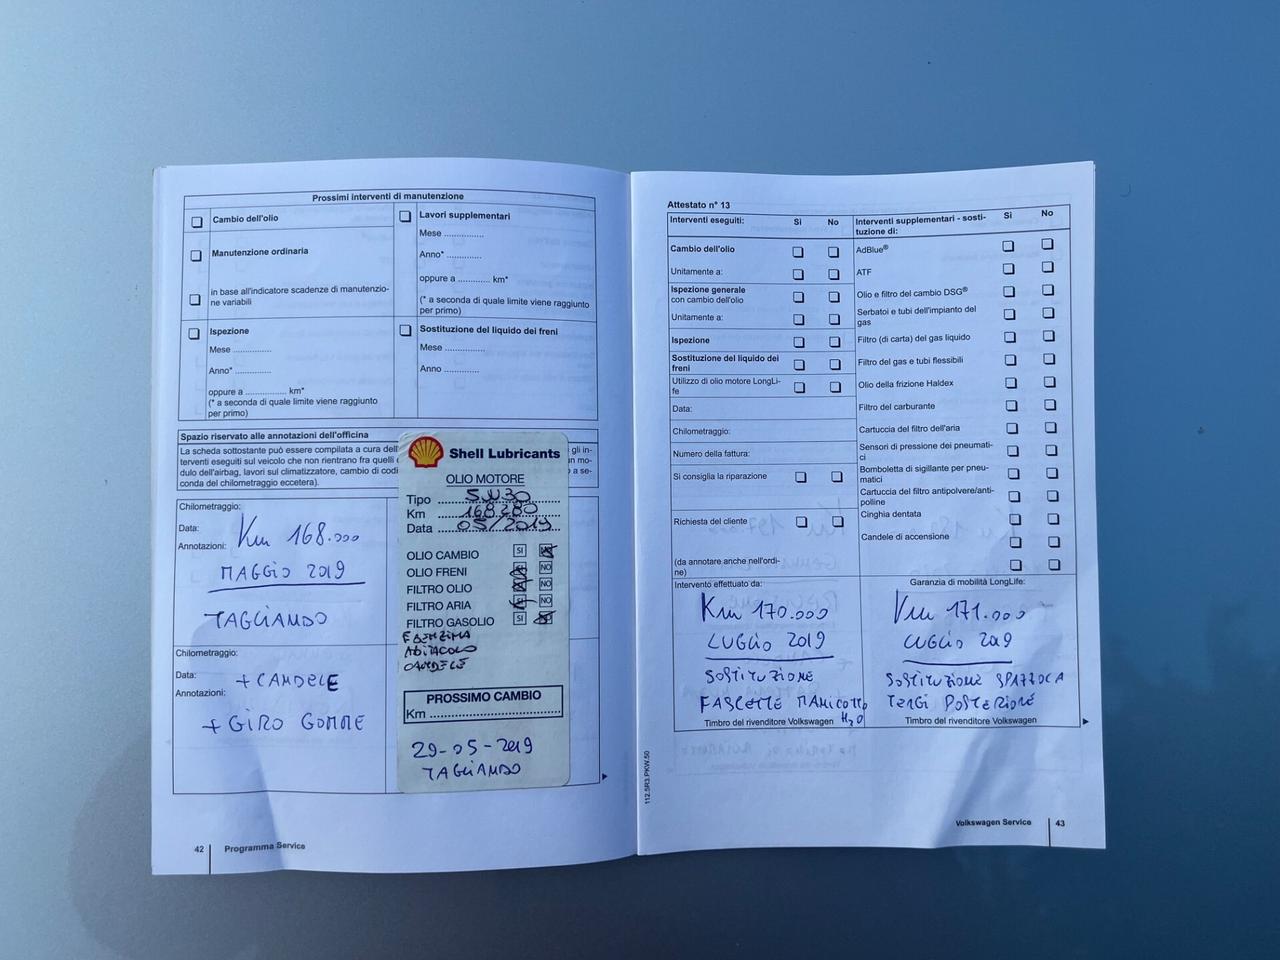 Prossimi interventi di manutenzione
Cambio dell'olio
Manutenzione ordinaria
in base all'indicatore scadenze di manutenzio-
ne variabili
Lavori supplementari
Mese ..............
Anno* .............
oppure a ............ km*
(* a seconda di quale limite viene raggiunto
per primo)
Ispezione
Mese ..............
Anno* ..............
oppure a ............... km*
(* a seconda di quale limite viene raggiunto
per primo)
Sostituzione del liquido dei freni
Mese ..............
Anno .............
Spazio riservato alle annotazioni dell'officina
La scheda sottostante può essere compilata a cura dell'
terventi eseguiti sul veicolo che non rientrano fra quelli
dulo dell'airbag, lavori sul climatizzatore, cambio di codi
conda del chilometraggio eccetera).
gli in-
mo-
a se-
Chilometraggio:
Data:
Annotazioni:
Km 168.000
MAGGIO 2019
TAGLIANDO
Chilometraggio:
Data:
Annotazioni:
+ CANDELE
+ GIRO GOMME
Shell Lubricants
OLIO MOTORE
Tipo 5W30
Km 168280
Data 05/2019
OLIO CAMBIO SI
OLIO FRENI NO
FILTRO OLIO NO
FILTRO ARIA NO
FILTRO GASOLIO SI
ABITACOLO
CANDELE
PROSSIMO CAMBIO
Km ..............................
29-05-2019
TAGLIANDO
42 Programma Service
Attestato n° 13
Interventi eseguiti: Sì No
Cambio dell'olio
Unitamente a:
Ispezione generale
con cambio dell'olio
Unitamente a:
Ispezione
Sostituzione del liquido dei
freni
Utilizzo di olio motore LongLi-
fe
Data:
Chilometraggio:
Numero della fattura:
Si consiglia la riparazione
Richiesta del cliente
(da annotare anche nell'ordi-
ne)
Interventi supplementari - sosti-
tuzione di: Sì No
AdBlue®
ATF
Olio e filtro del cambio DSG®
Serbatoi e tubi dell'impianto del
gas
Filtro (di carta) del gas liquido
Filtro del gas e tubi flessibili
Olio della frizione Haldex
Filtro del carburante
Cartuccia del filtro dell'aria
Sensori di pressione dei pneumati-
ci
Bomboletta di sigillante per pneu-
matici
Cartuccia del filtro antipolvere/anti-
polline
Cinghia dentata
Candele di accensione
Intervento effettuato da:
Km 170.000
LUGLIO 2019
SOSTITUZIONE
FASCETTE MANICOTTO
H2O
Timbro del rivenditore Volkswagen
Garanzia di mobilità LongLife:
Km 171.000
LUGLIO 2019
SOSTITUZIONE SPAZZOLA
TERGI POSTERIORE
Timbro del rivenditore Volkswagen
112.5R3.PKW.50
Volkswagen Service 43